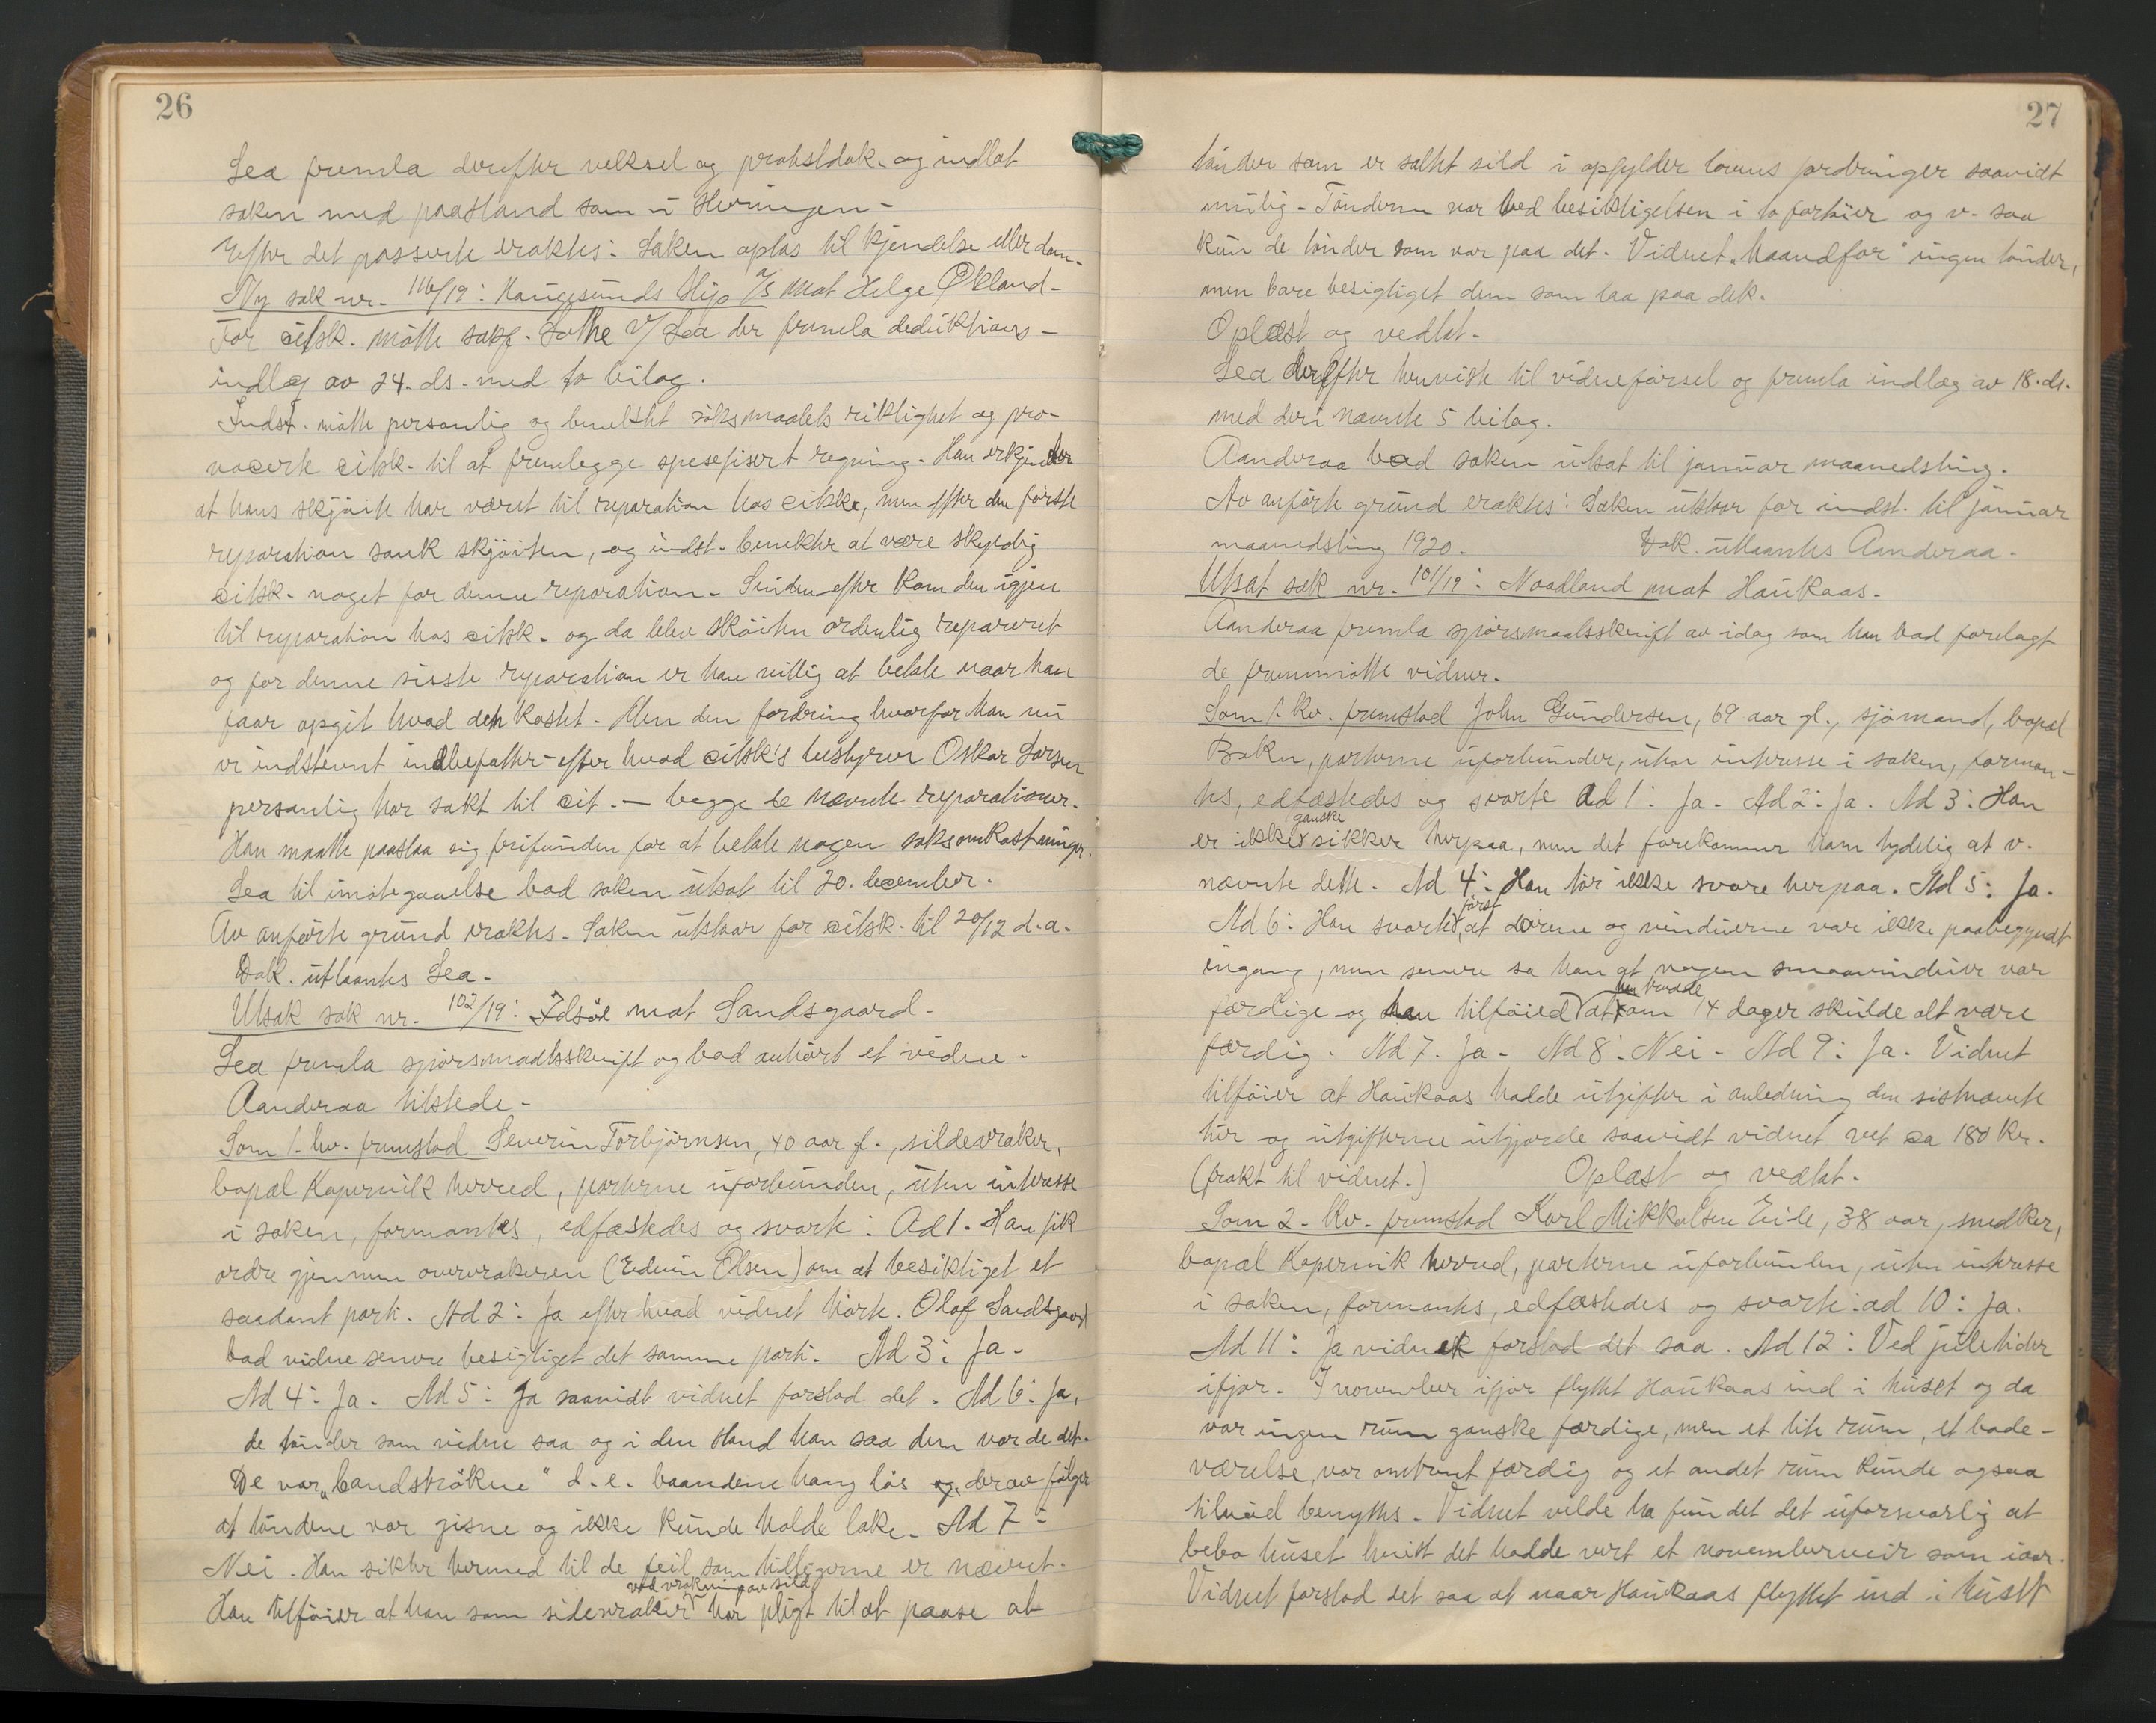 26
Lea fremla derefter veksel og protestdok. og indlot
saken med paastand som i stevningen -
Efter det passerte eraktes: Saken optas til kjendelse eller dom.
Ny sak nr. 116/19: Haugesunds Slip A/S mot Helge Økland -
For citsk. møtte sakf. Lothe v/ Lea der fremla deduktions-
indlæg av 24. ds. med to bilag.
Indst. møtte personlig og benektet søksmaalets riktighet og pro-
vocerte citsk. til at fremlegge spesefisert regning. Han erkjender
at hans skjøite har været til reparation hos citsk., men efter den første
reparation sank skjøiten, og indst. benekter at være skyldig
citsk. noget for denne reparation. Sinden efter kom den igjen
til reparation hos citsk. og da blev skøiten ordentlig reparert
og for denne siste reparation er han villig at betale naar han
faar opgit hvad den kostet. Men den fordring hvorfor han nu
er indstevnt indbefatter - efter hvad citsk's bestyrer Oskar Larsen
personlig har sakt til cit. - begge de nævnte reparationer.
Han maatte paastaa sig frifunden for at betale nogen saksomkostninger.
Lea til imøtegaaelse bad saken utsat til 20. december.
Av anførte grund eraktes. Saken utstaar for citsk. til 20/12 d.a.
Dok. utlaantes Lea.
Utsat sak nr. 102/19: Idsøe mot Sandsgaard.
Lea fremla spørsmaalsskrift og bad anhørt et vidne.
Aanderaa tilstede.
Som 1. hv. fremstod Severin Torbjørnsen, 40 aar gl., sildevraker,
bopæl Kopervik herred, parterne uforbunden, uten interesse
i saken, formantes, edfæstedes og svarte: Ad 1. Han fik
ordre gjennem overvrakeren (Edvin Olsen) om at besiktiget et
saadant parti. Ad 2: Ja efter hvad vidnet hørte. Olaf Sandsgaard
bad vidne senere besigtiget det samme parti. Ad 3: Ja.
Ad 4: Ja. Ad 5: Ja saavidt vidnet forstod det. Ad 6: Ja,
de tønder som vidne saa og i den stand han saa dem var de det.
De var "bandstrøkne" d.e. baandene hang løs og derav følger
at tøndene var gisne og ikke kunde holde lake. Ad 7:
Nei. Han sikter hermed til de feil som tidligerne er nævnt.
ved vrakning av sild
Han tilføier at han som sildevraker har pligt til at paase at
27
tønder som er saltet sild i opfylder lovens fordringer saavidt
mulig. Tønderne var ved besiktigelsen i to farkøier og v. saa
kun de tønder som var paa det. Vidnet "haandfor" ingen tønder,
men bare besigtiget dem som laa paa dek.
Oplæst og vedtat.
Lea derefter henviste til vidneførsel og fremla indlæg av 18. ds.
med deri nævnte 5 bilag.
Aanderaa bad saken utsat til januar maanedsting.
Av anførte grund eraktes: Saken utstaar for indst. til januar
maanedsting 1920. Dok. utlaantes Aanderaa.
Utsat sak nr. 101/19: Naadland mot Haukaas.
Aanderaa fremla spørsmaalsskrift av idag som han bad forelagt
de fremmøtte vidner.
Som 1. hv. fremstod John Gundersen, 69 aar gl., sjømand, bopæl
Bokn, parterne uforbunden, uten interesse i saken, forman-
tes, edfæstedes og svarte Ad 1: Ja. Ad 2: Ja. Ad 3: Han
ganske
er ikke sikker herpaa, men det forekommer ham tydelig at v.
nævnte dette. Ad 4: Han tør ikke svare herpaa. Ad 5: Ja.
først
Ad 6: Han svarte, at dørene og vinduerne var ikke paabegyndt
engang, men senere sa han at nogen smaavinduer var
han trodde
færdige og han tilføied at om 14 dager skulde alt være
færdig. Ad 7. Ja. Ad 8: Nei. Ad 9: Ja. Vidnet
tilføier at Haukaas hadde utgifter i anledning den sistnævnte
tur og utgifterne utgjorde saavidt vidnet vet ca 180 kr.
(frakt til vidnet.) Oplæst og vedtat.
Som 2. hv. fremstod Karl Mikkalsen Eile, 38 aar, snedker,
bopæl Kopervik herred, parterne uforbunden, uten interesse
i saken, formantes, edfæstedes og svarte: ad 10: Ja.
Ad 11: Ja vidnet forstod det saa. Ad 12: Ved juletider
ifjor. I november ifjor flyttet Haukaas ind i huset og da
var ingen rum ganske færdige, men et lite rum, et bade-
værelse, var omtrent færdig og et andet rum kunde ogsaa
tilnød benyttes. Vidnet vilde ha fundet det uforsvarlig at
bebo huset hvist det hadde vert et novemberveir som iaar.
Vidnet forstod det saa at naar Haukaas flyttet ind i huset